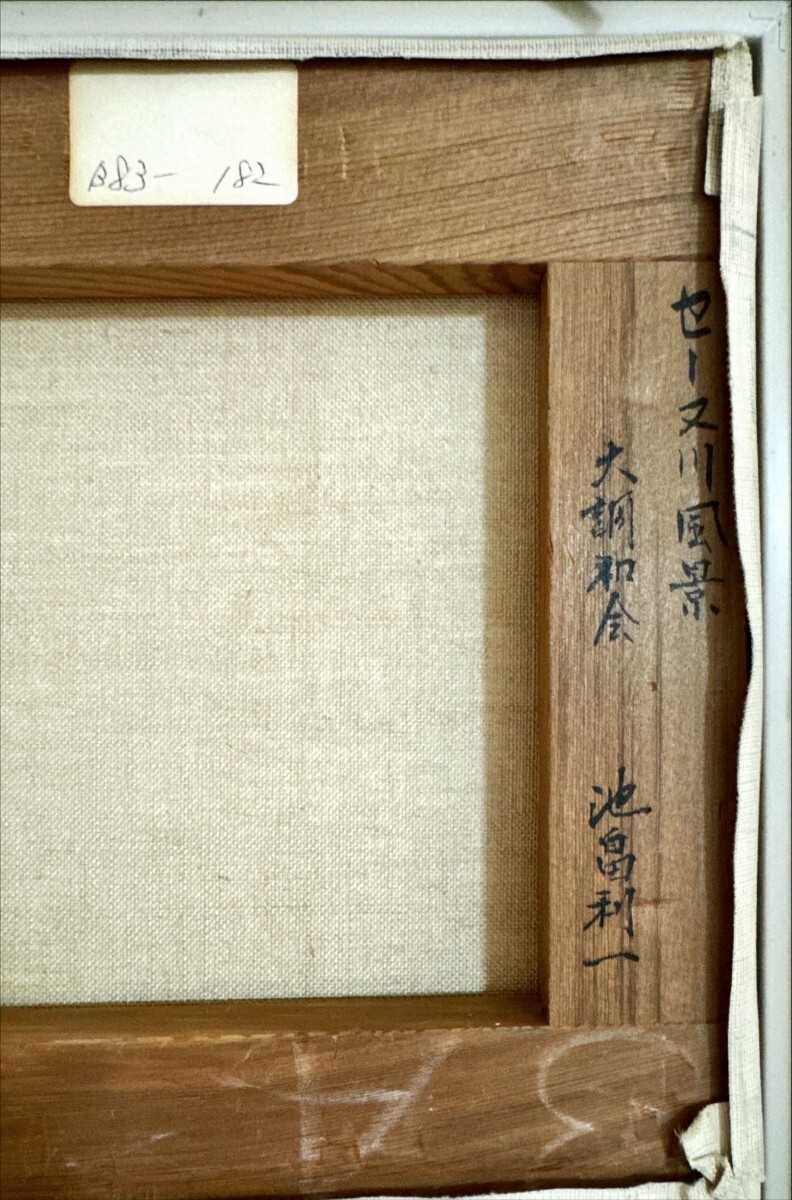 B83- 182
セーヌ川風景
大調和会 池畠利一